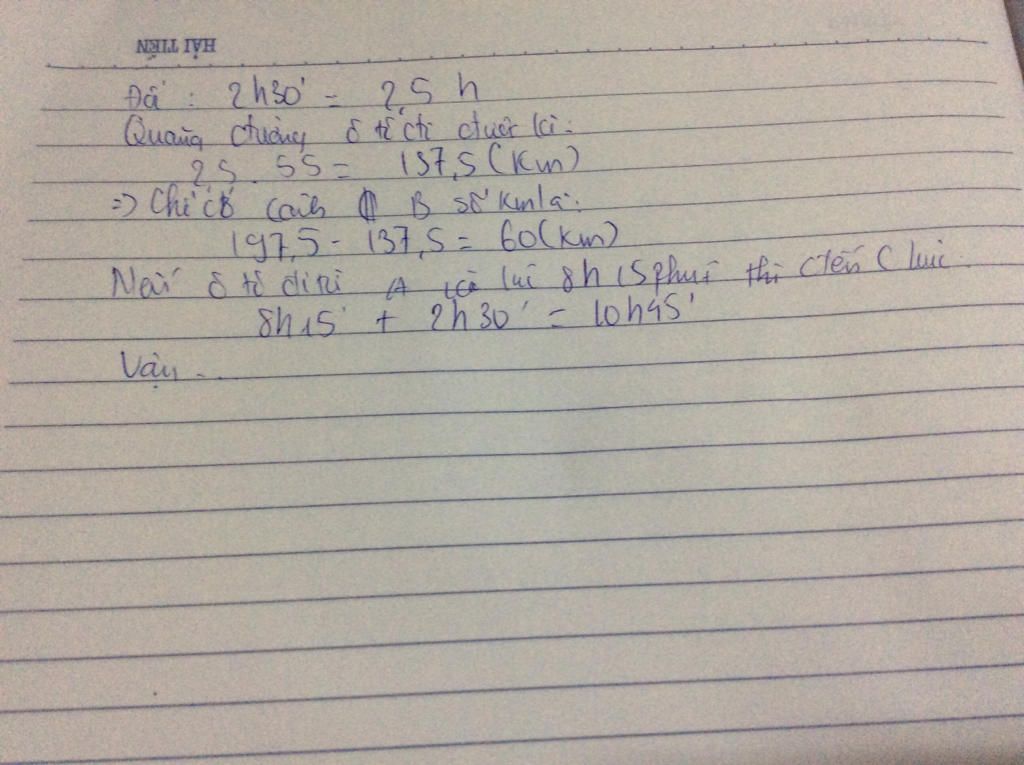 HẢI TIẾN
Đổi : 2h30' = 2,5 h
Quãng đường ô tô đi được là:
2,5 . 55 = 137,5 (Km)
=> Chỗ cách B số Km là:
197,5 - 137,5 = 60 (Km)
Nếu ô tô đi từ A lúc 8h 15 phút thì đến C lúc
8h15' + 2h30' = 10h45'
Vậy ...